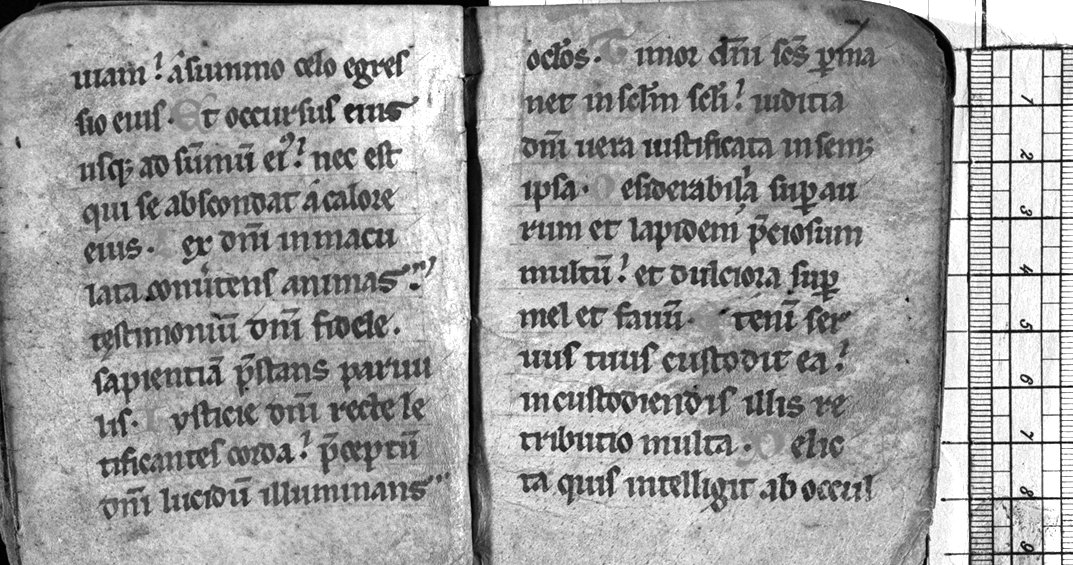 uiam? a summo celo egres
sio eius. Et occursus eius
usq; ad sūmū ei⁹? nec est
qui se abscondat a calore
eius. Lex dn̄i inmacu
lata conuͥtens animas?
testimoniū dn̄i fidele.
sapientiā p̄stans paruu
lis. Iusticie dn̄i recte le
tificantes corda? p̄ceptū
dn̄i lucidū illuminans
ocl̄os. Timor dn̄i sc̄s ꝑma
net in scl̄m scl̄i? iudicia
dn̄i uera iustificata in semꝫ
ipsa. Desiderabilꝰa suꝑ au
rum et lapidem p̄ciosum
multū? et dulciora suꝑ
mel et fauū. Etenī ser
uus tuus custodit ea?
in custodiendis illis re
tributio multa. Delic
ta quis intelligit ab occul
1
2
3
4
5
6
7
8
9